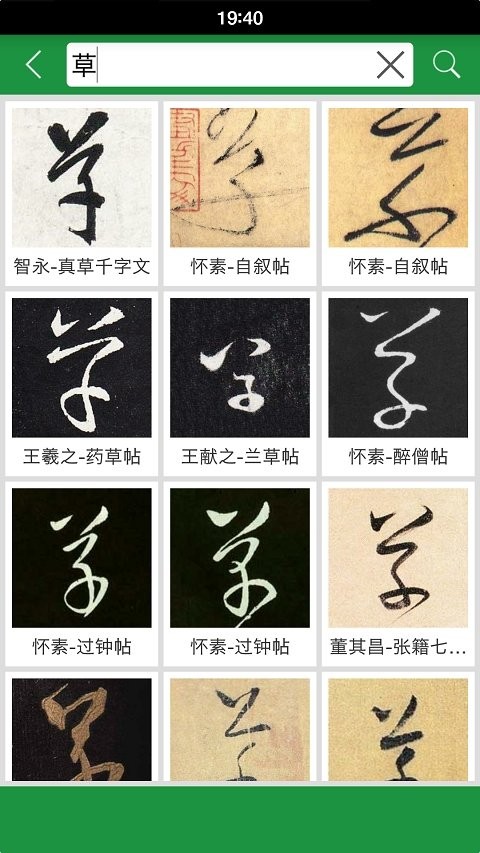 19:40
草
草 草 草
智永-真草千字文 怀素-自叙帖 怀素-自叙帖
草 草 草
王羲之-药草帖 王献之-兰草帖 怀素-醉僧帖
草 草 草
怀素-过钟帖 怀素-过钟帖 董其昌-张籍七...
草 草 草